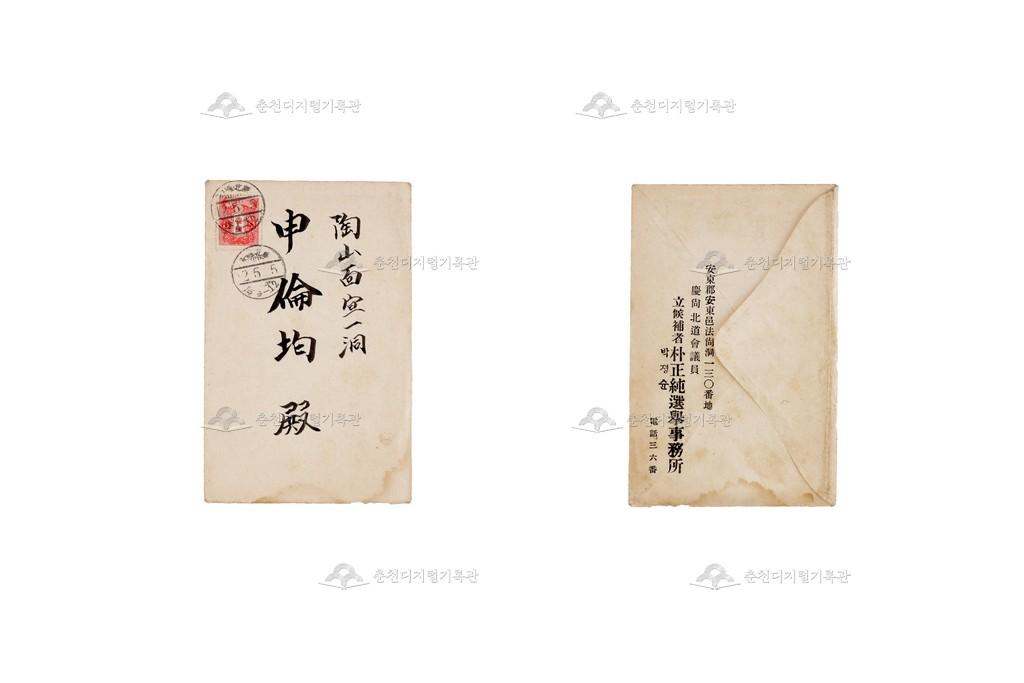 춘천디지털기록관
춘천디지털기록관
陶山面宣一洞
申倫均殿
12.5.5
춘천디지털기록관
춘천디지털기록관
安東郡安東邑法尙洞一三〇番地
慶尙北道會議員
立候補者 朴正純選擧事務所
박정순
電話三六番
춘천디지털기록관
춘천디지털기록관
춘천디지털기록관
춘천디지털기록관